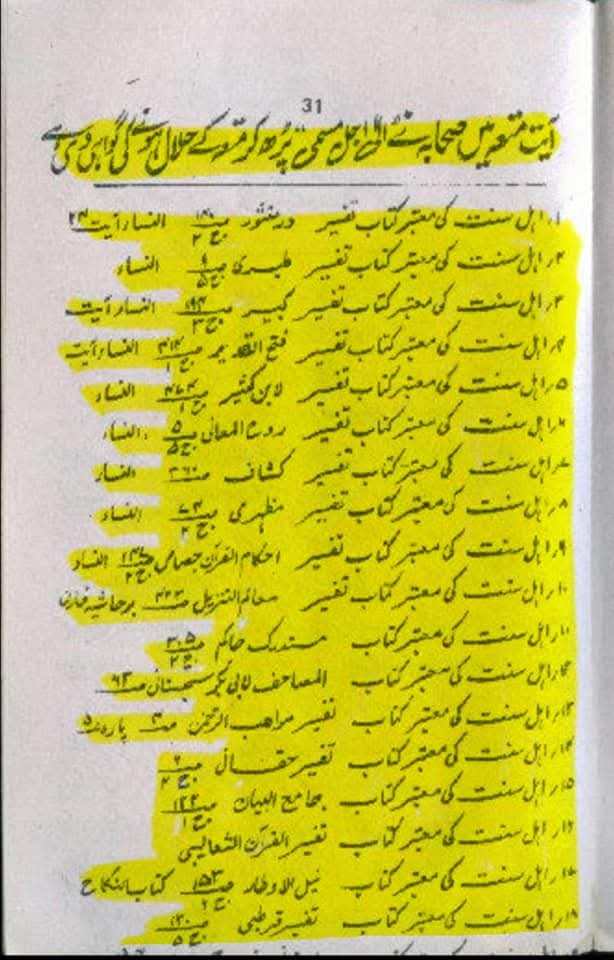 31
آیت متعہ میں صحابہ نے الیٰ اجل مسمی پڑھ کر متعہ کے حلال ہونے کی گواہی دی ہے
۱۔ اہل سنت کی معتبر کتاب تفسیر درمنثور ص۱۴۰ ج۲ النساء آیت ۲۴
۲۔ اہل سنت کی معتبر کتاب تفسیر طبری ص۹ ج۵ النساء
۳۔ اہل سنت کی معتبر کتاب تفسیر کبیر ص۱۹۴ ج۳ النساء آیت
۴۔ اہل سنت کی معتبر کتاب تفسیر فتح القدیر ص۴۱۴ ج۱ النساء آیت
۵۔ اہل سنت کی معتبر کتاب تفسیر لابن کثیر ص۴۷۴ ج۱ النساء
۶۔ اہل سنت کی معتبر کتاب تفسیر روح المعانی ص۵ ج۵ النساء
۷۔ اہل سنت کی معتبر کتاب تفسیر کشاف ص۳۶۰ النساء
۸۔ اہل سنت کی معتبر کتاب تفسیر مظہری ص۷۴ ج۲ النساء
۹۔ اہل سنت کی معتبر کتاب تفسیر احکام القرآن جصاص ص۱۴۷ ج۲ النساء
۱۰۔ اہل سنت کی معتبر کتاب تفسیر معالم التنزیل ص۴۲۳ بر حاشیہ خازن
۱۱۔ اہل سنت کی معتبر کتاب مستدرک حاکم ص۳۰۵ ج۲
۱۲۔ اہل سنت کی معتبر کتاب المصاحف لابی بکر سجستانی ص۶۳
۱۳۔ اہل سنت کی معتبر کتاب تفسیر مواہب الرحمٰن ص۳ پارہ ۵
۱۴۔ اہل سنت کی معتبر کتاب تفسیر حقانی ج۲
۱۵۔ اہل سنت کی معتبر کتاب جامع البیان ج۱
۱۶۔ اہل سنت کی معتبر کتاب تفسیر القرآن الثعالبی
۱۷۔ اہل سنت کی معتبر کتاب نیل الاوطار ص۱۵۳ کتاب النکاح
۱۸۔ اہل سنت کی معتبر کتاب تفسیر قرطبی ص۱۳۰ ج۵